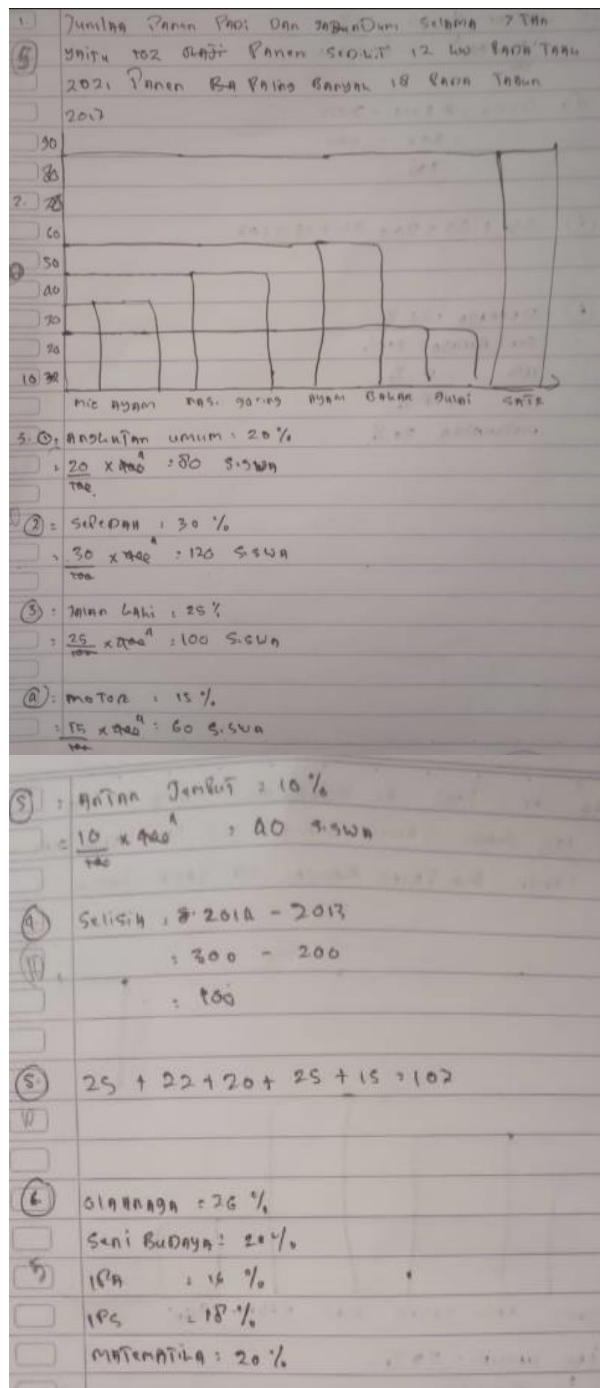 1. Jumlah Panen Padi Dan Selama 7 Tan
yaitu 102 Panen SeDikit 12 kw PADA TAHu
2021 Panen PAling BAnyak 18 PADA TAHun
2017
90
80
2. 70
60
50
40
30
20
10
mie AyAm nAs. goring AyAm BAkAR gulAi SATE
3. ①: Angkutan umum : 20 %
: 20/100 x 400 4 : 80 S.swA
②: SePeDAH : 30 %
: 30/100 x 400 4 : 120 S.swA
③: JAlAn kAki : 25 %
: 25/100 x 400 4 : 100 S.swA
④: moTor : 15 %
: 15/100 x 400 4 : 60 S.swA
⑤: AnTAR JemPuT : 10 %
: 10/100 x 400 4 : 40 S.swA
4. SelisiH : 2014 - 2013
: 300 - 200
: 100
5. 25 + 22 + 20 + 25 + 15 = 107
10
6. OlAHRAgA : 26 %
Seni BuDAyA : 20 %
5 IPA : 16 %
IPS : 18 %
MATemATikA : 20 %